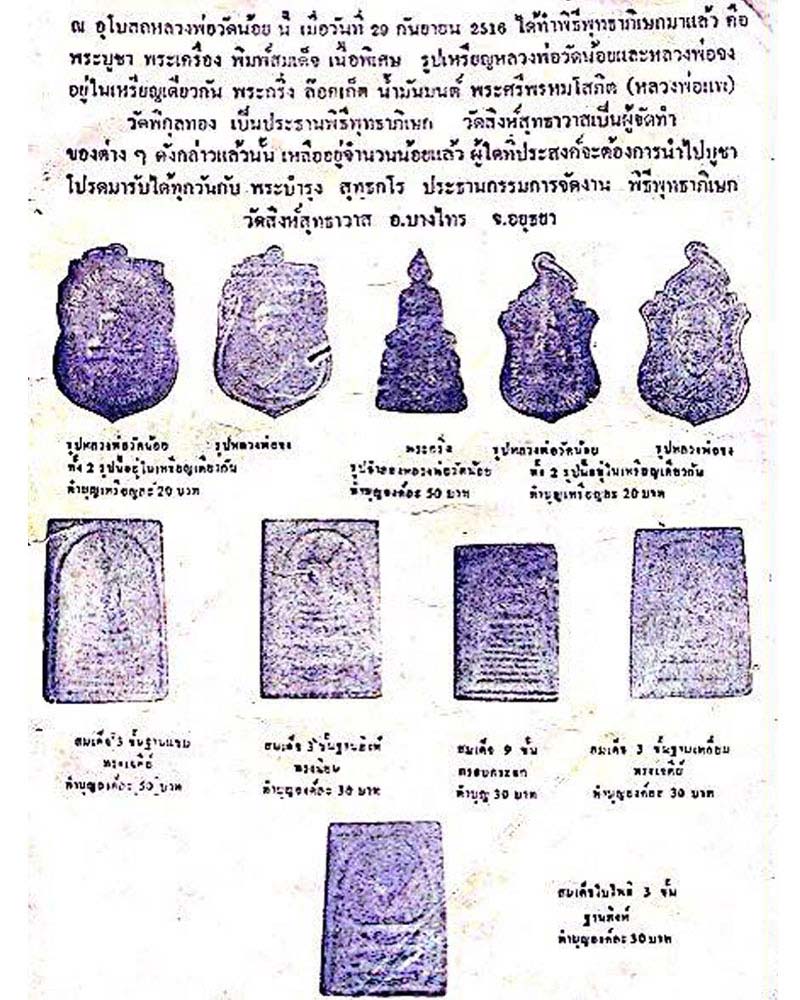 ณ อุโบสถหลวงพ่อวัดน้อย นี้ เมื่อวันที่ 29 กันยายน 2516 ได้ทำพิธีพุทธาภิเษกมาแล้ว คือ
พระบูชา พระเครื่อง พิมพ์สมเด็จ เนื้อพิเศษ รูปเหรียญหลวงพ่อวัดน้อยและหลวงพ่อจง
อยู่ในเหรียญเดียวกัน พระกริ่ง ล๊อกเก็ต น้ำมันมนต์ พระศรีพรหมโสภิต (หลวงพ่อแพ)
วัดพิกุลทอง เป็นประธานพิธีพุทธาภิเษก วัดสิงห์สุทธาวาสเป็นผู้จัดทำ
ของต่าง ๆ ดังกล่าวแล้วนั้น เหลืออยู่จำนวนน้อยแล้ว ผู้ใดที่ประสงค์จะต้องการนำไปบูชา
โปรดมารับได้ทุกวันกับ พระบำรุง สุทธกโร ประธานกรรมการจัดงาน พิธีพุทธาภิเษก
วัดสิงห์สุทธาวาส อ.บางไทร จ.อยุธยา
รูปหลวงพ่อวัดน้อย รูปหลวงพ่อจง
ทั้ง 2 รูปนี้อยู่ในเหรียญเดียวกัน
ทำบุญเหรียญละ 20 บาท
พระกริ่ง
รูปจำลองหลวงพ่อวัดน้อย
ทำบุญองค์ละ 50 บาท
รูปหลวงพ่อวัดน้อย รูปหลวงพ่อจง
ทั้ง 2 รูปนี้อยู่ในเหรียญเดียวกัน
ทำบุญเหรียญละ 20 บาท
สมเด็จ 3 ชั้นฐานแซม
ทรงเจดีย์
ทำบุญองค์ละ 50 บาท
สมเด็จ 3 ชั้นฐานสิงห์
ทรงนิยม
ทำบุญองค์ละ 30 บาท
สมเด็จ 9 ชั้น
ครอบกระจก
ทำบุญ 30 บาท
สมเด็จ 3 ชั้นฐานเหลี่ยม
ทรงเจดีย์
ทำบุญองค์ละ 30 บาท
สมเด็จใบโพธิ์ 3 ชั้น
ฐานสิงห์
ทำบุญองค์ละ 30 บาท